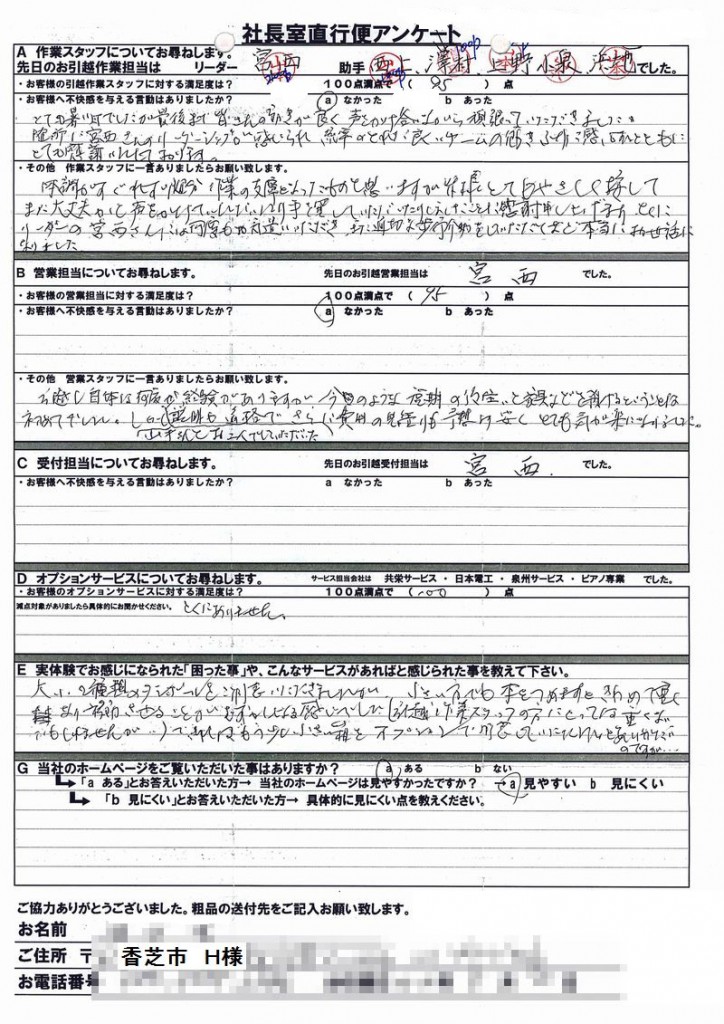 社長室直行便アンケート
A 作業スタッフについてお尋ねします。
先日のお引越作業担当は リーダー 宮西 助手 西上、澤村、上野 小泉、 でした。
・お客様の引越作業スタッフに対する満足度は? 100点満点で ( 95 ) 点
・お客様へ不快感を与える言動はありましたか? a なかった b あった
とても暑い日でしたが最後まで皆さんの動きが良く声をかけ合いながら頑張っていただきました。
随所に宮西さんのリーダーシップが感じられ、統率のとれた良いチームの働きぶりに感心するとともに
とても感謝いたしております。
・その他 作業スタッフに一言ありましたらお願い致します。
体調がすぐれず 作業の支障となったものと思いますが皆様とてもやさしく接して
また大丈夫かと声をかけて 感謝申し上げます とくに
リーダーの宮西さんには何度もお気遣いいただき、 本当にお世話に
なりました
B 営業担当についてお尋ねします。 先日のお引越営業担当は 宮西 でした。
・お客様の営業担当に対する満足度は? 100点満点で ( 95 ) 点
・お客様へ不快感を与える言動はありましたか? a なかった b あった
・その他 営業スタッフに一言ありましたらお願い致します。
お引越し自体は何度か経験がありますが 今回のような 荷物の や家具などを預けるということは
初めてでした。しかし説明も 適格で さらに費用の見積りも予想より安く とても気が楽になりました。
(山本さんとお二人でしていただいた)
C 受付担当についてお尋ねします。 先日のお引越受付担当は 宮西 でした。
・お客様へ不快感を与える言動はありましたか? a なかった b あった
D オプションサービスについてお尋ねします。 サービス担当会社は 共栄サービス ・ 日本電工 ・ 泉州サービス ・ ピアノ専業 でした。
・お客様のオプションサービスに対する満足度は? 100点満点で ( 100 ) 点
減点対象がありましたら具体的にお聞かせください。 とくにありません。
E 実体験でお感じになられた「困った事」や、こんなサービスがあればと感じられた事を教えて下さい。
大小2種類のダンボールをご用意いただきましたが、小さい方でも本をつめますときわめて重く
あまり移動させることがむずかしくなる感じでした(引越し作業スタッフの方にとっては重くない
かもしれませんが…)できればもう少し小さい箱をオプションで用意していただけたらと
のですが…
G 当社のホームページをご覧いただいた事はありますか? a ある b ない
「a ある」とお答えいただいた方→ 当社のホームページは見やすかったですか? →a 見やすい b 見にくい
「b 見にくい」とお答えいただいた方→ 具体的に見にくい点を教えください。
ご協力ありがとうございました。粗品の送付先をご記入お願い致します。
お名前
ご住所 〒 香芝市 H様
お電話番号